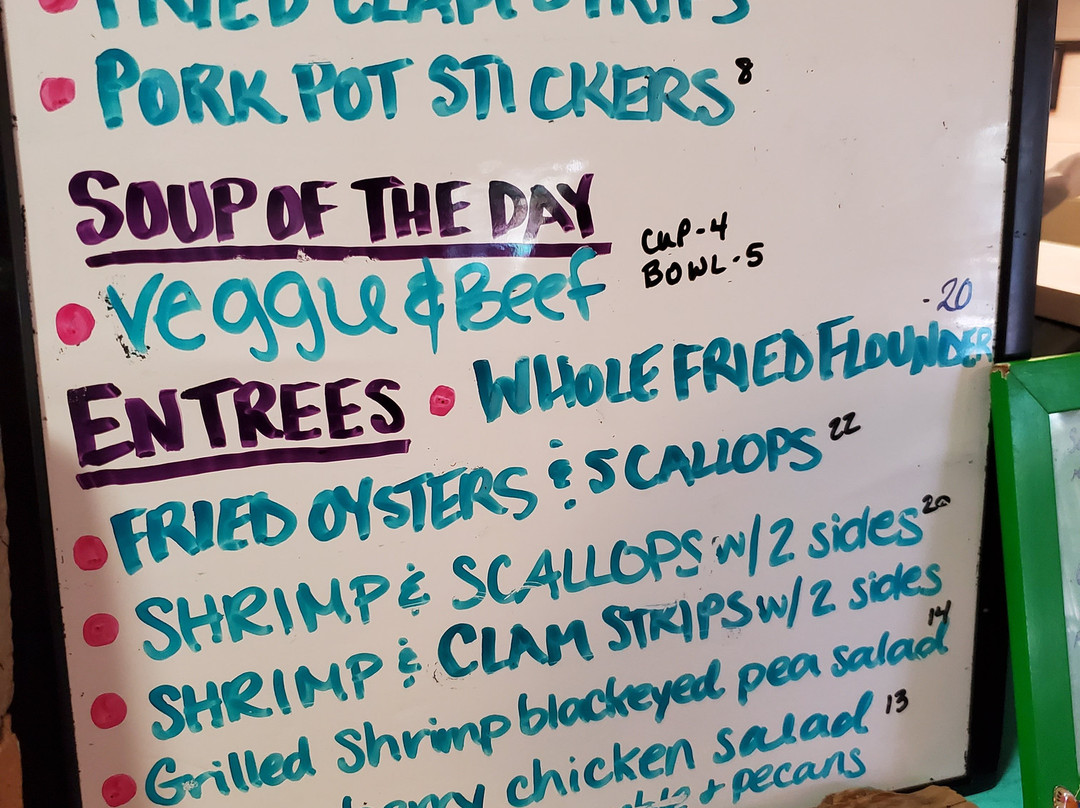 FRIED CLAM STRIPS
PORK POT STICKERS 8
SOUP OF THE DAY
CUP-4
BOWL-5
Veggie & Beef
-20
ENTREES • WHOLE FRIED FLOUNDER
FRIED OYSTERS & SCALLOPS 22
SHRIMP & SCALLOPS w/2 sides 20
SHRIMP & CLAM STRIPS w/2 sides
14
Grilled Shrimp blackeyed pea salad
chicken salad 13
+ pecans